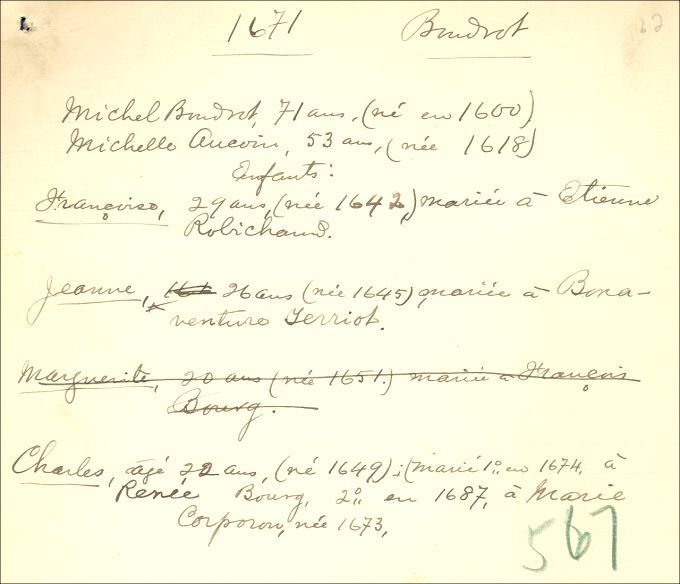 1671 Boudrot 62
Michel Boudrot, 71 ans, (né en 1600)
Michelle Aucoin, 53 ans, (née 1618)
Enfants:
Françoise, 29 ans, (née 1642,) mariée à Etienne
Robichaud.
Jeanne, 26 ans (née 1645) mariée à Bona-
venture Terriot.
Marguerite, 20 ans (née 1651.) mariée à François
Bourg.
Charles, âgé 22 ans, (né 1649); (marié 1º. en 1674, à
Renée Bourg, 2º. en 1687, à Marie
Corporon, née 1673,
567